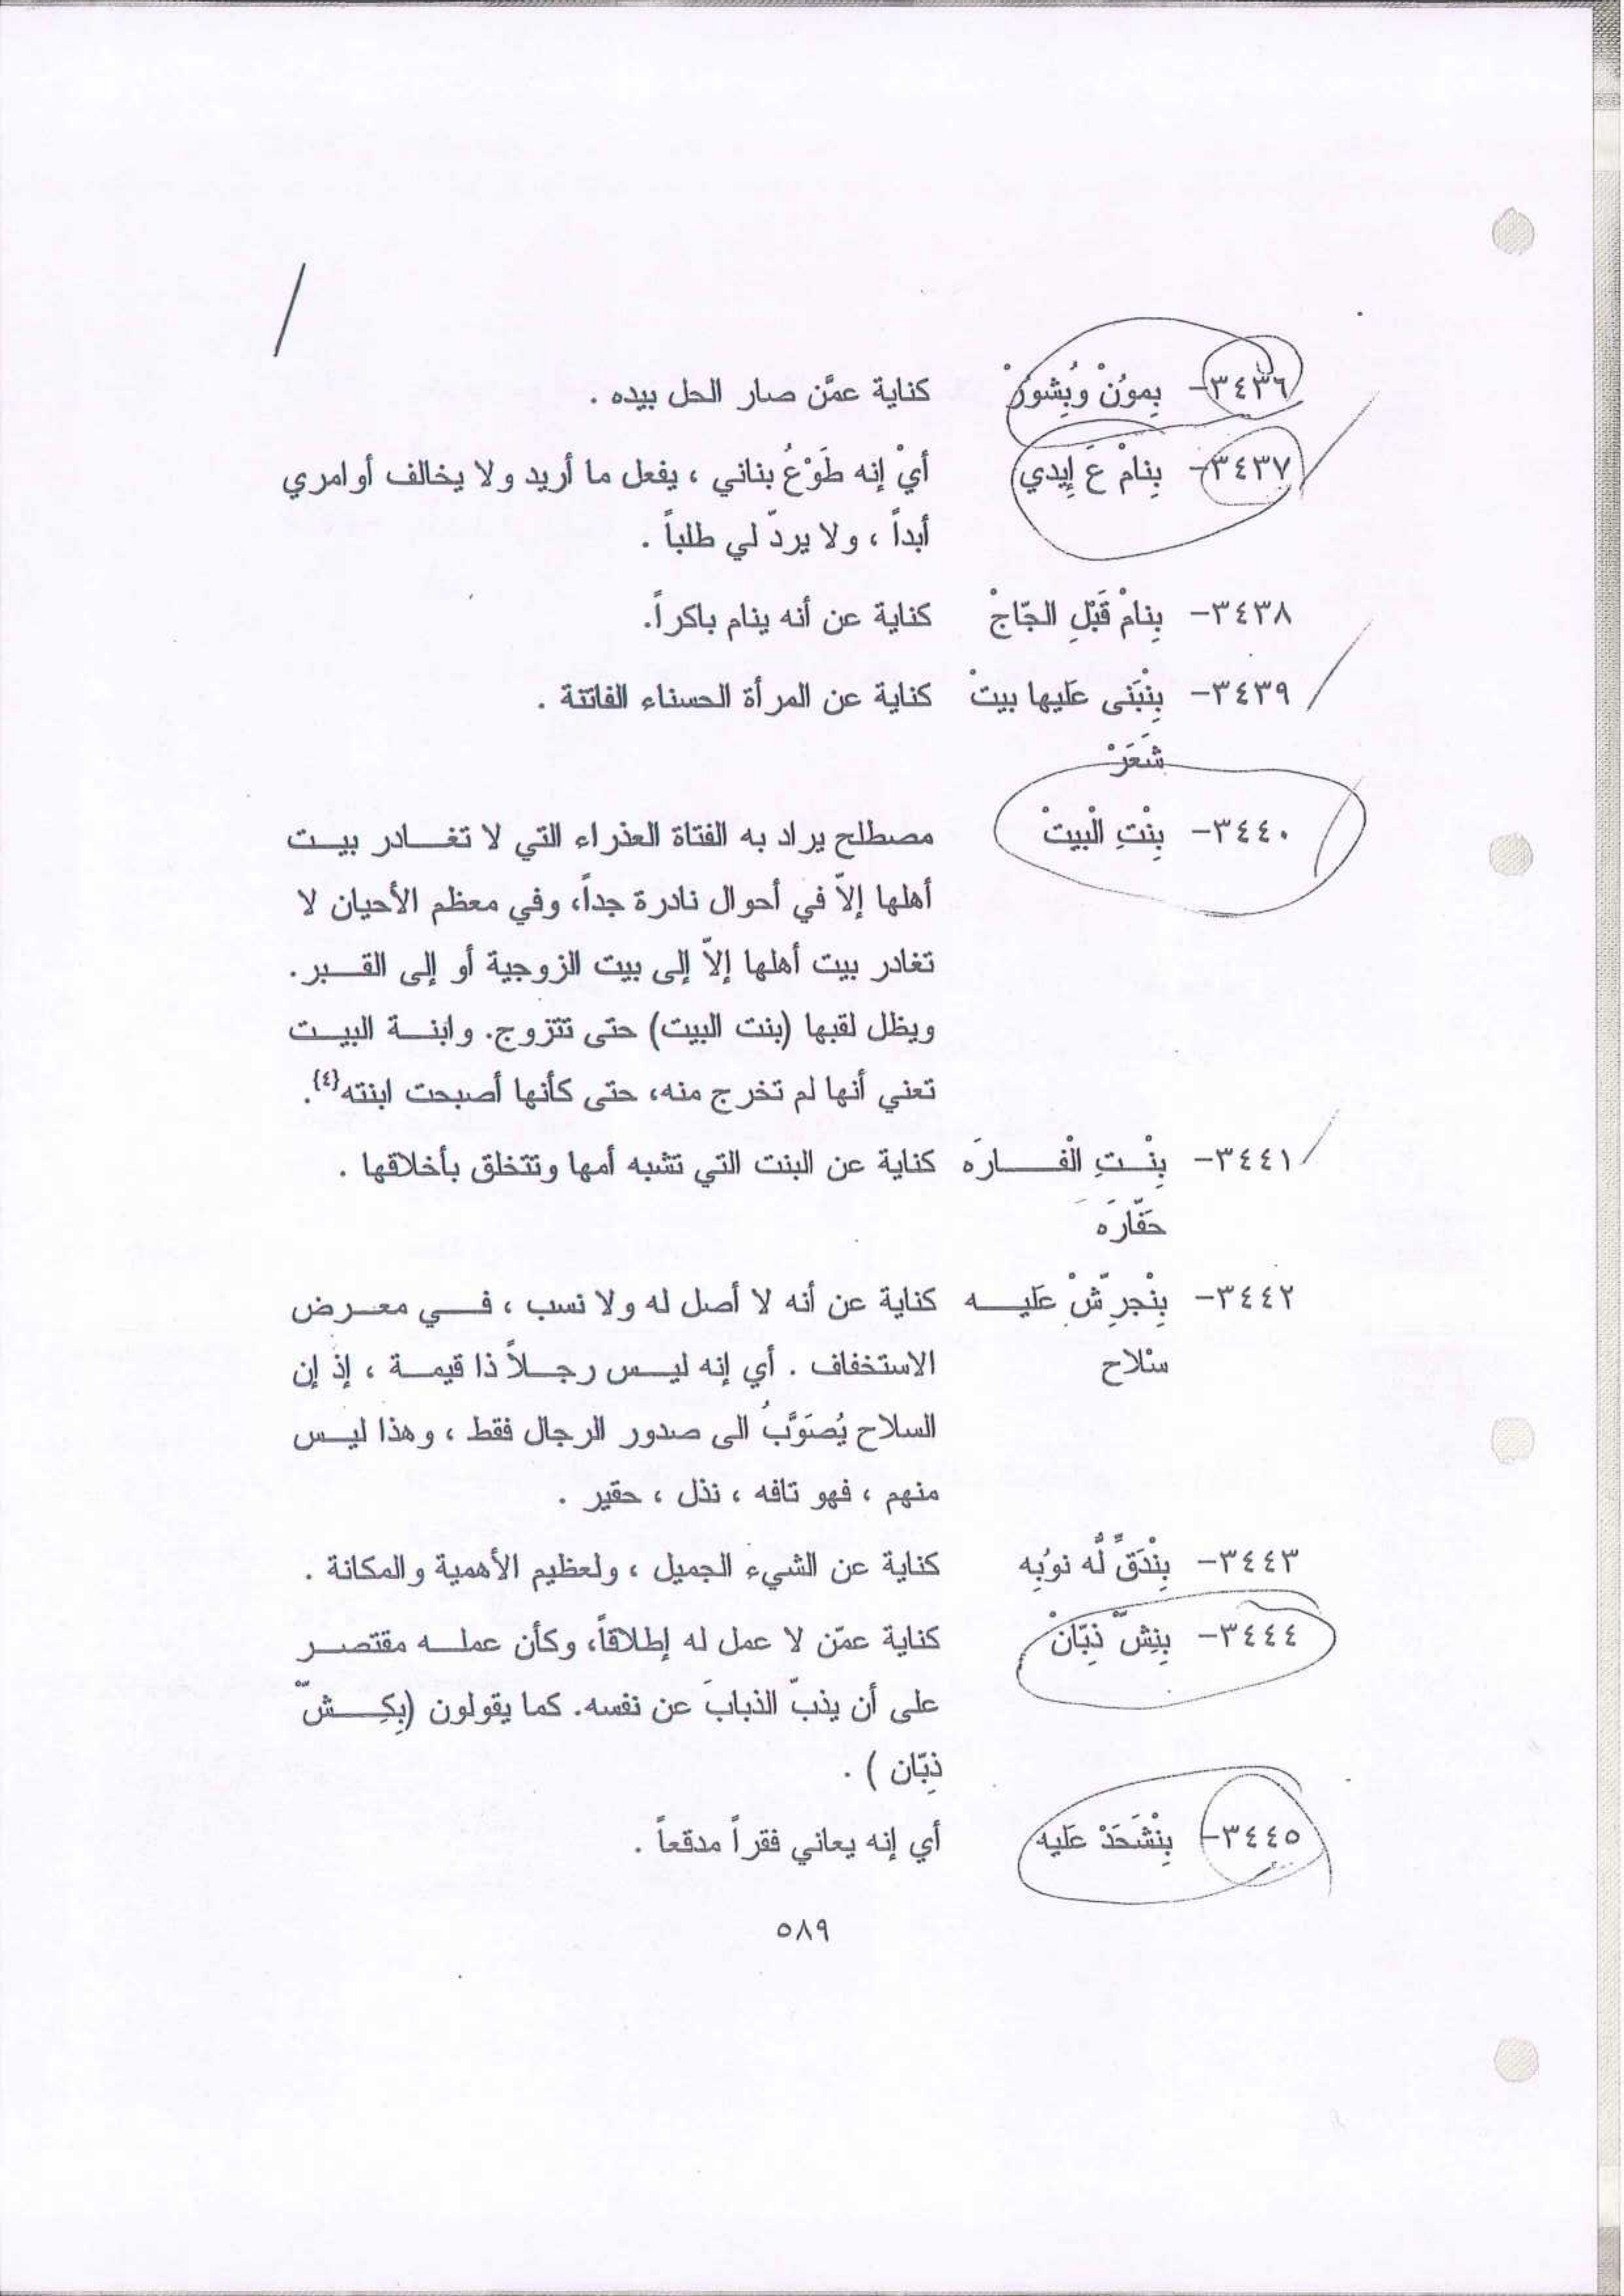 ٣٤٣٦- بِموُنْ وُبِشوُرْ كناية عمَّن صار الحل بيده .
٣٤٣٧- بِنامْ عَ إِيدي أيْ إنه طَوْعُ بناني ، يفعل ما أريد ولا يخالف أوامري
أبداً ، ولا يردّ لي طلباً .
٣٤٣٨- بِنامْ قَبْلِ الجّاجْ كناية عن أنه ينام باكراً.
٣٤٣٩- بِنْبَنى عَليها بيتْ كناية عن المرأة الحسناء الفاتنة .
شَعَرْ
٣٤٤٠- بِنْتِ الْبيتْ مصطلح يراد به الفتاة العذراء التي لا تغادر بيت
أهلها إلاّ في أحوال نادرة جداً، وفي معظم الأحيان لا
تغادر بيت أهلها إلاّ إلى بيت الزوجية أو إلى القبر.
ويظل لقبها (بنت البيت) حتى تتزوج. وابنة البيت
تعني أنها لم تخرج منه، حتى كأنها أصبحت ابنته{٤}.
٣٤٤١- بِنْتِ الْفارَه كناية عن البنت التي تشبه أمها وتتخلق بأخلاقها .
حَفّارَه
٣٤٤٢- بِنْجرِّشْ عَليه كناية عن أنه لا أصل له ولا نسب ، في معرض
سْلاح الاستخفاف . أي إنه ليس رجلاً ذا قيمة ، إذ إن
السلاح يُصَوَّبُ الى صدور الرجال فقط ، وهذا ليس
منهم ، فهو تافه ، نذل ، حقير .
٣٤٤٣- بِنْدَقِّ لُّه نوُبِه كناية عن الشيء الجميل ، ولعظيم الأهمية والمكانة .
٣٤٤٤- بِنِشّ ذِبّانْ كناية عمّن لا عمل له إطلاقاً، وكأن عمله مقتصر
على أن يذبّ الذبابَ عن نفسه. كما يقولون (بِكِشّ
ذِبّان ) .
٣٤٤٥- بِنْشَحَدْ عَليه أي إنه يعاني فقراً مدقعاً .
٥٨٩